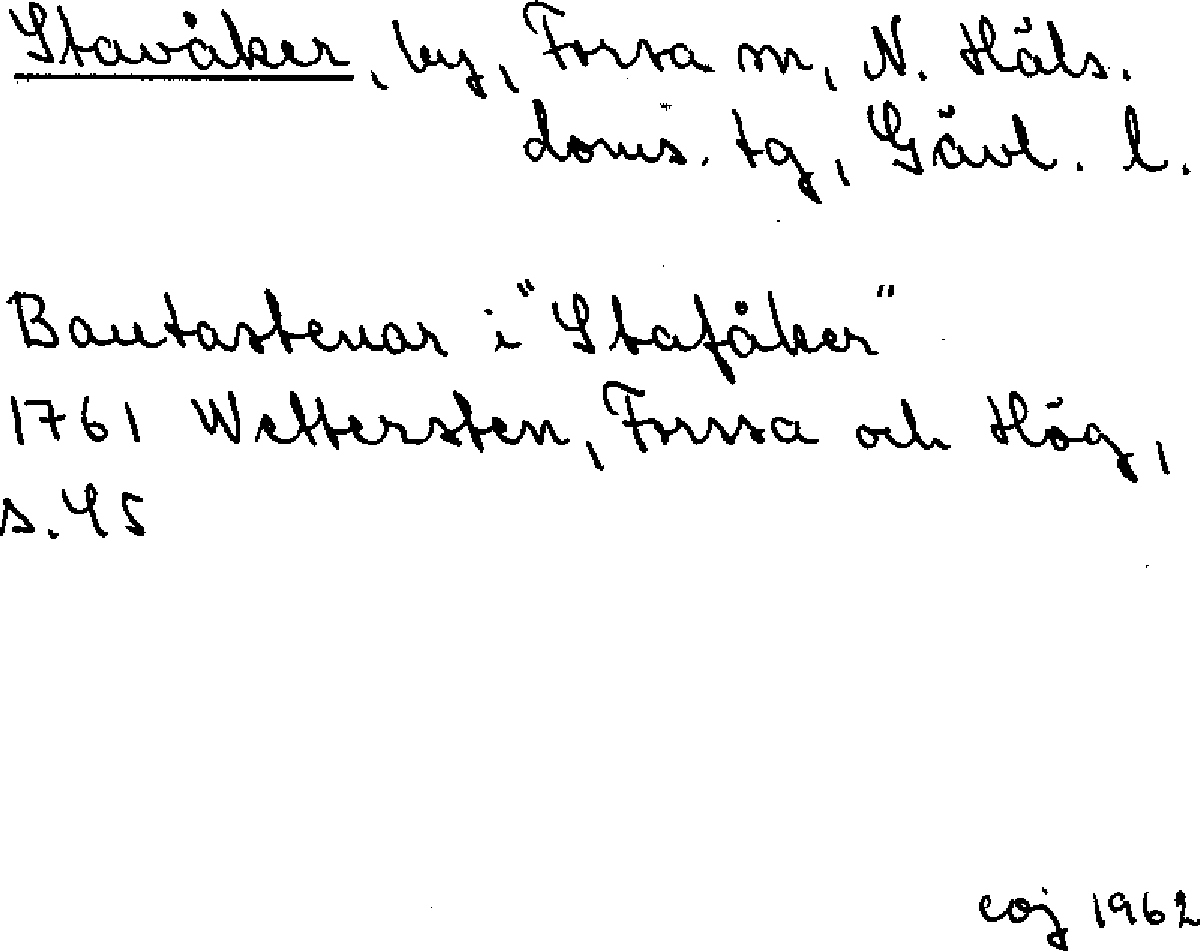 Stavåker, by, Forsa sn, N. Häls.
doms. tg, Gävl. l.
Bautastenar i "Stafåker"
1761 Wettersten, Forssa och Hög,
s. 45
eoj 1962